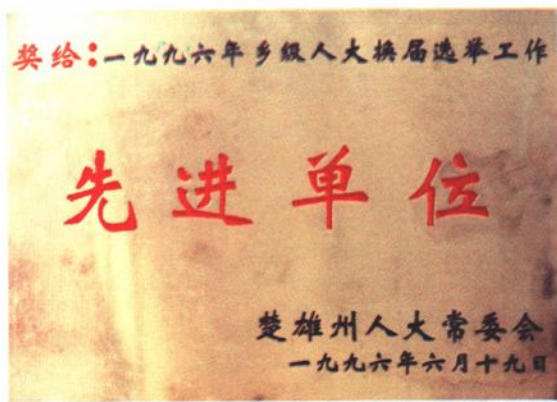 奖给:一九九六年乡级人大换届选举工作
先进单位
楚雄州人大常委会
一九九六年六月十九日